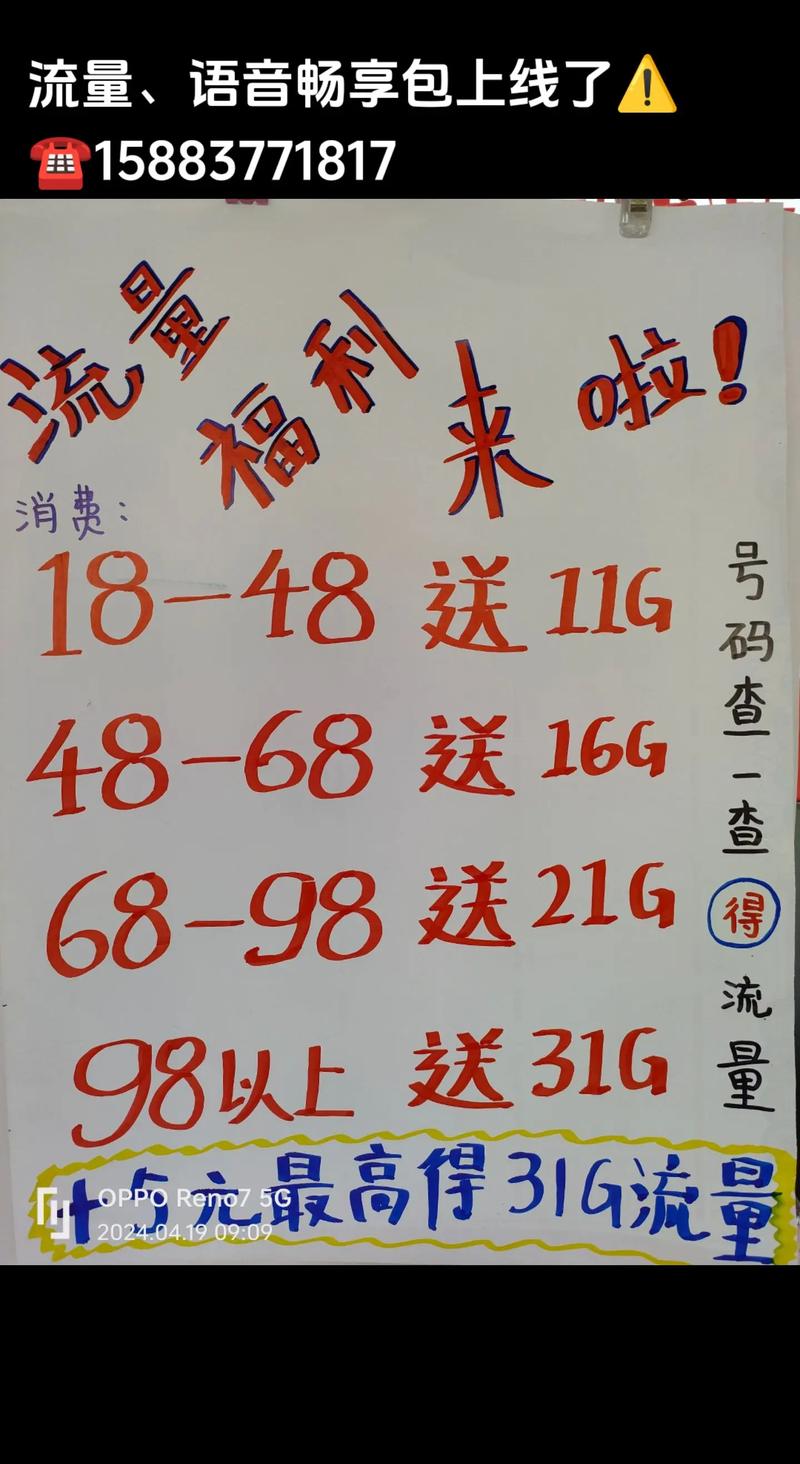 流量、语音畅享包上线了⚠️
☎️15883771817
流量福利来啦！
消费：
18-48 送 11G
48-68 送 16G
68-98 送 21G
98以上 送 31G
号码查一查得流量
+5元最高得31G流量
OPPO Reno7 5G
2024.04.19 09:09